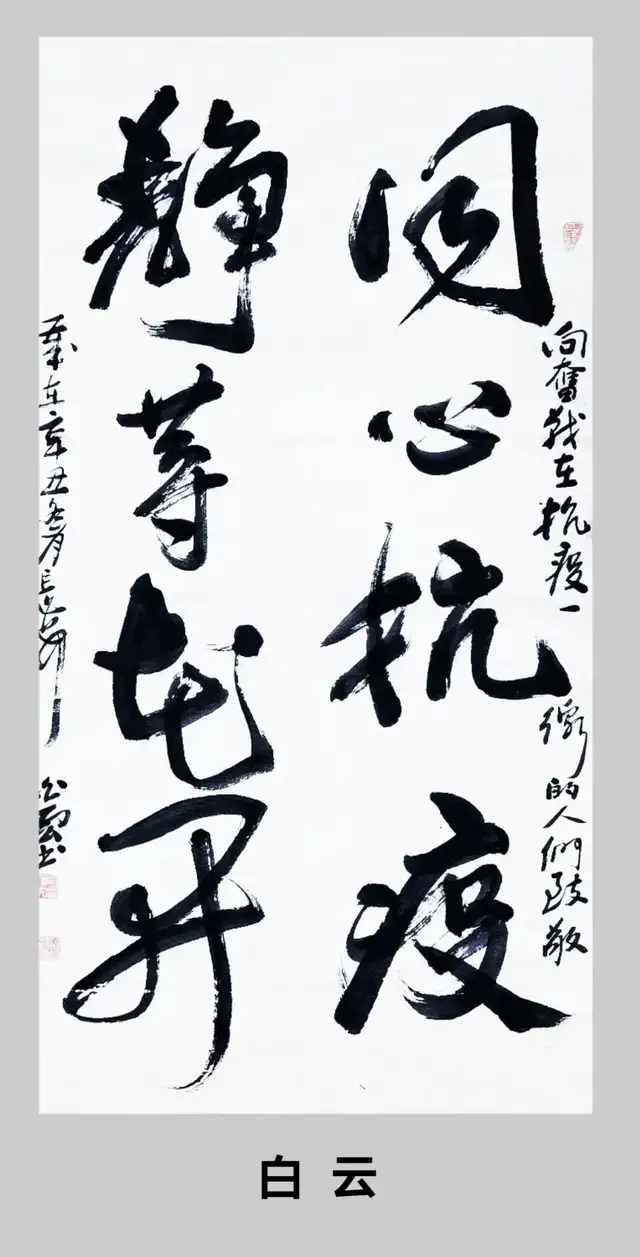 向奮战在抗疫一線的人們致敬
同心抗疫
静等花开
岁在辛丑冬月
白雲书
白云